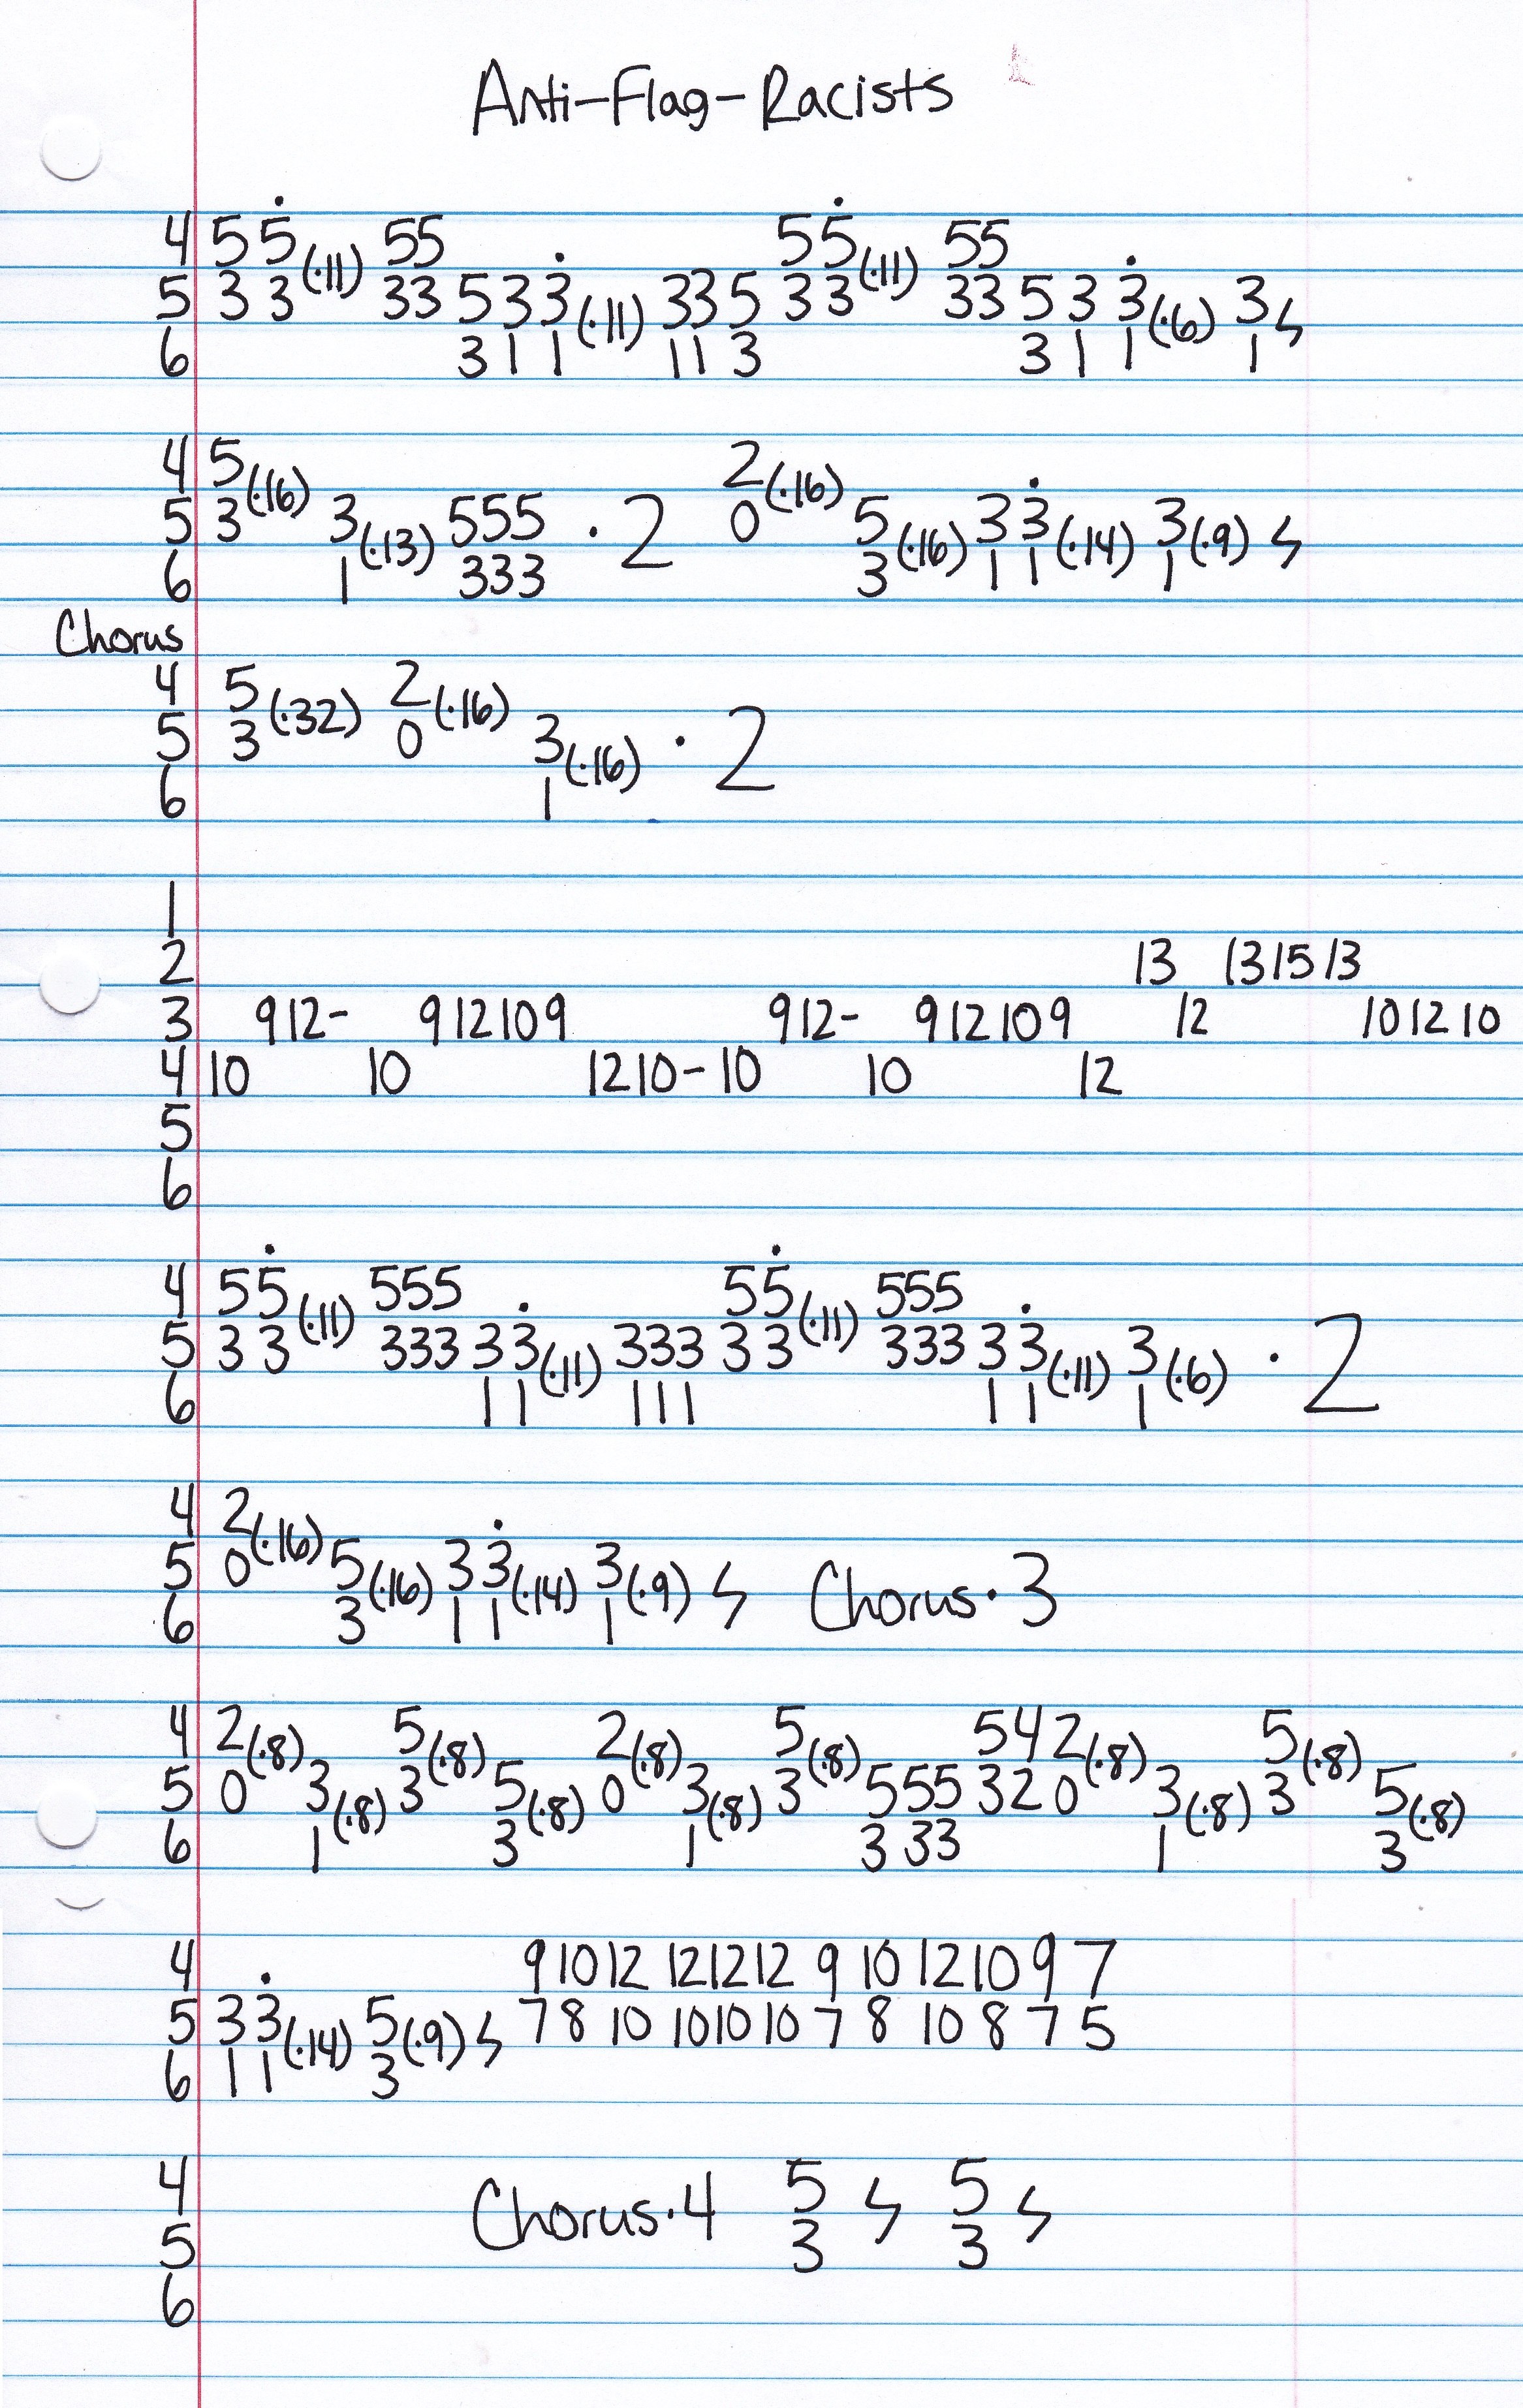 Anti-Flag-Racists
4 5 5̇ (·11) 55 5 5̇ (·11) 55
5 3 3 33 5 3 3̇ (·11) 33 5 3 3 33 5 3 3̇ (·6) 3 ϟ
6 3 1 1 11 3 3 1 1 1
4 5 (·16) 2 (·16)
5 3 3 (·13) 555 · 2 0 5 (·16) 3 3̇ (·14) 3 (·9) ϟ
6 1 333 3 1 1 1
Chorus
4 5 (·32) 2 (·16)
5 3 0 3 (·16) · 2
6 1
1
2 13 13 15 13
3 9 12- 9 12 10 9 9 12- 9 12 10 9 12 10 12 10
4 10 10 12 10- 10 10 12
5
6
4 5 5̇ (·11) 555 5 5̇ (·11) 555
5 3 3 333 3 3̇ (·11) 333 3 3 333 3 3̇ (·11) 3 (·6) · 2
6 1 1 111 1 1 1
4 2 (·16)
5 0 5 (·16) 3 3̇ (·14) 3 (·9) ϟ Chorus · 3
6 3 1 1 1
4 2 (·8) 5 (·8) 2 (·8) 5 (·8) 5 4 2 (·8) 5 (·8)
5 0 3 (·8) 3 5 (·8) 0 3 (·8) 3 5 55 3 2 0 3 (·8) 3 5 (·8)
6 1 3 1 3 33 1 3
4 9 10 12 12 12 12 9 10 12 10 9 7
5 3 3̇ (·14) 5 (·9) ϟ 7 8 10 10 10 10 7 8 10 8 7 5
6 1 1 3
4 Chorus · 4 5 ϟ 5 ϟ
5 3 3
6